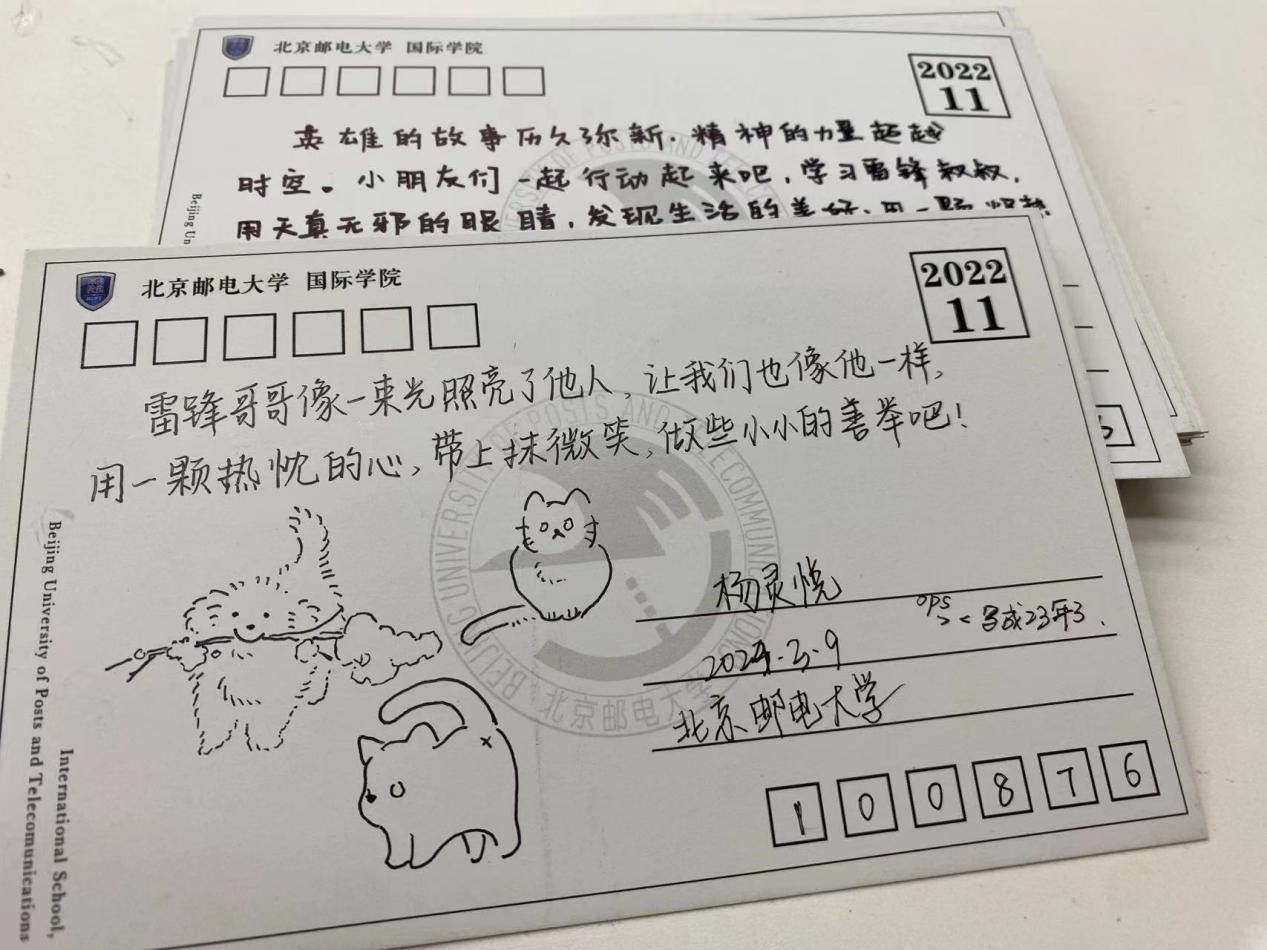 北京邮电大学 国际学院
2022
11
英雄的故事历久弥新,精神的力量超越
时空。小朋友们一起行动起来吧,学习雷锋叔叔,
用天真无邪的眼睛,发现生活的美好,用一颗炽热
Beijing Un
北京邮电大学 国际学院
2022
11
雷锋哥哥像一束光照亮了他人,让我们也像他一样,
用一颗热忱的心,带上抹微笑,做些小小的善举吧!
杨灵悦
ops
>< 写成23年3.
2024.3.9
北京邮电大学
100876
BEIJING UNIVERSITY OF POSTS AND TELECOMMUNICATIONS
北京邮电大学
International School,
Beijing University of Posts and Telecomunications